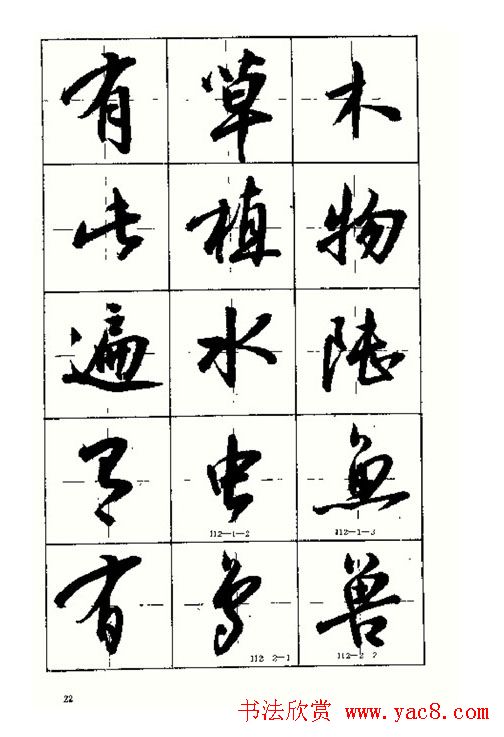 有草木
此植物
遍水陸
有虫魚
112—1—2 112—1—3
有鳥兽
112 2—1 112—2 2
22
书法欣赏 www.yac8.com